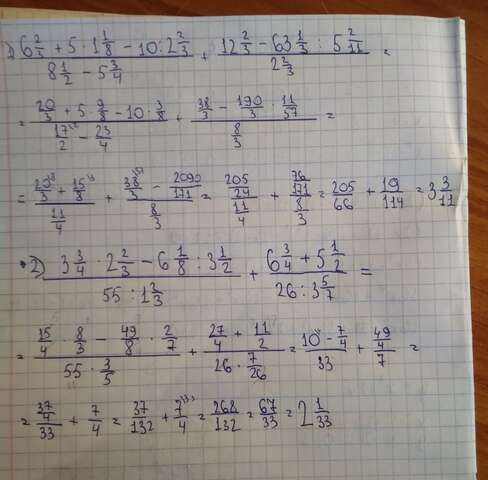 1) (6 2/3 + 5 · 1 1/8 − 10 : 2 2/3)/(8 1/2 − 5 3/4) + (12 2/3 − 63 1/3 : 5 2/11)/(2 2/3) =
= (20/3 + 5 · 9/8 − 10 · 3/8)/(17/2 − 23/4) + (38/3 − 190/3 · 11/57)/(8/3) =
= (20/3 + 15/8)/(11/4) + (38/3 − 2090/171)/(8/3) = (205/24)/(11/4) + (76/171)/(8/3) = 205/66 + 19/114 = 3 3/11
2) (3 3/4 · 2 2/3 − 6 1/8 : 3 1/2)/(55 : 1 2/3) + (6 3/4 + 5 1/2)/(26 : 3 5/7) =
= (15/4 · 8/3 − 49/8 · 2/7)/(55 · 3/5) + (27/4 + 11/2)/(26 · 7/26) = (10 − 7/4)/33 + (49/4)/7 =
= (37/4)/33 + 7/4 = 37/132 + 7/4 = 268/132 = 67/33 = 2 1/33